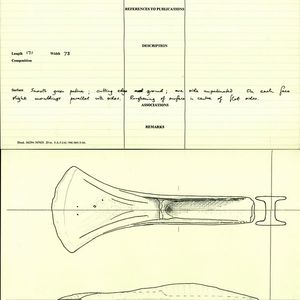 REFERENCES TO PUBLICATIONS
DESCRIPTION
Length 171 Width 73
Composition
Surface Smooth green patina; cutting edge ground; one side unpatinated. On each face
slight mouldings parallel with sides. Roughening of surface in centre of flat sides.
ASSOCIATIONS
REMARKS